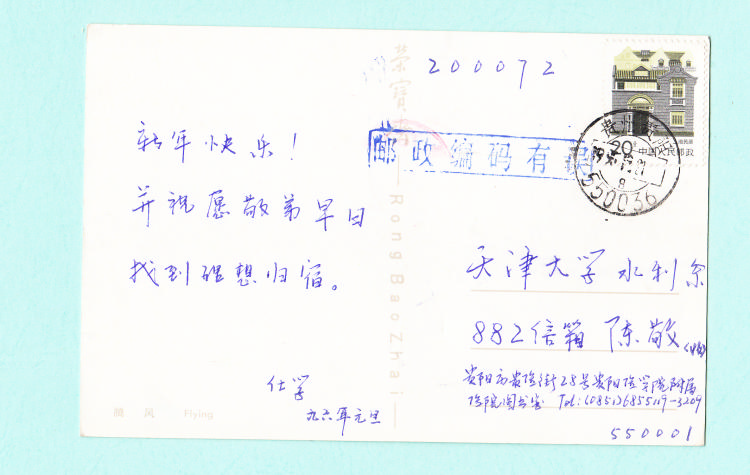 200072
荣宝斋
邮政编码有误
新年快乐!
并祝愿敬弟早日
找到理想归宿。
仕学
九六年元旦
RongBaoZhai
中国人民邮政
20
贵州贵阳
550036
天津大学水利系
882信箱 陈敬
贵阳市贵医街28号贵阳医学院附属
医院图书室 Tel:(0851)6855119-3209
550001
Flying